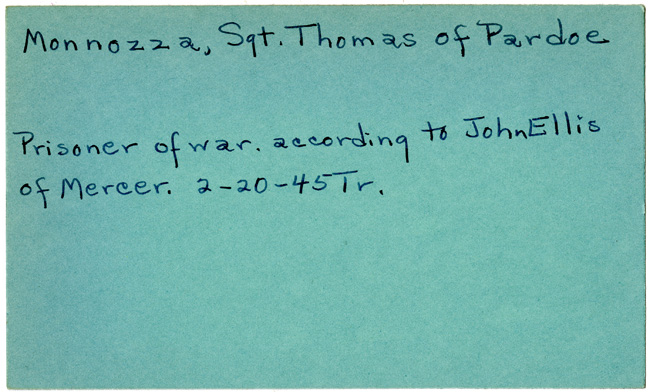 Monnozza, Sgt. Thomas of Pardoe
Prisoner of war. according to John Ellis
of Mercer. 2-20-45 Tr.